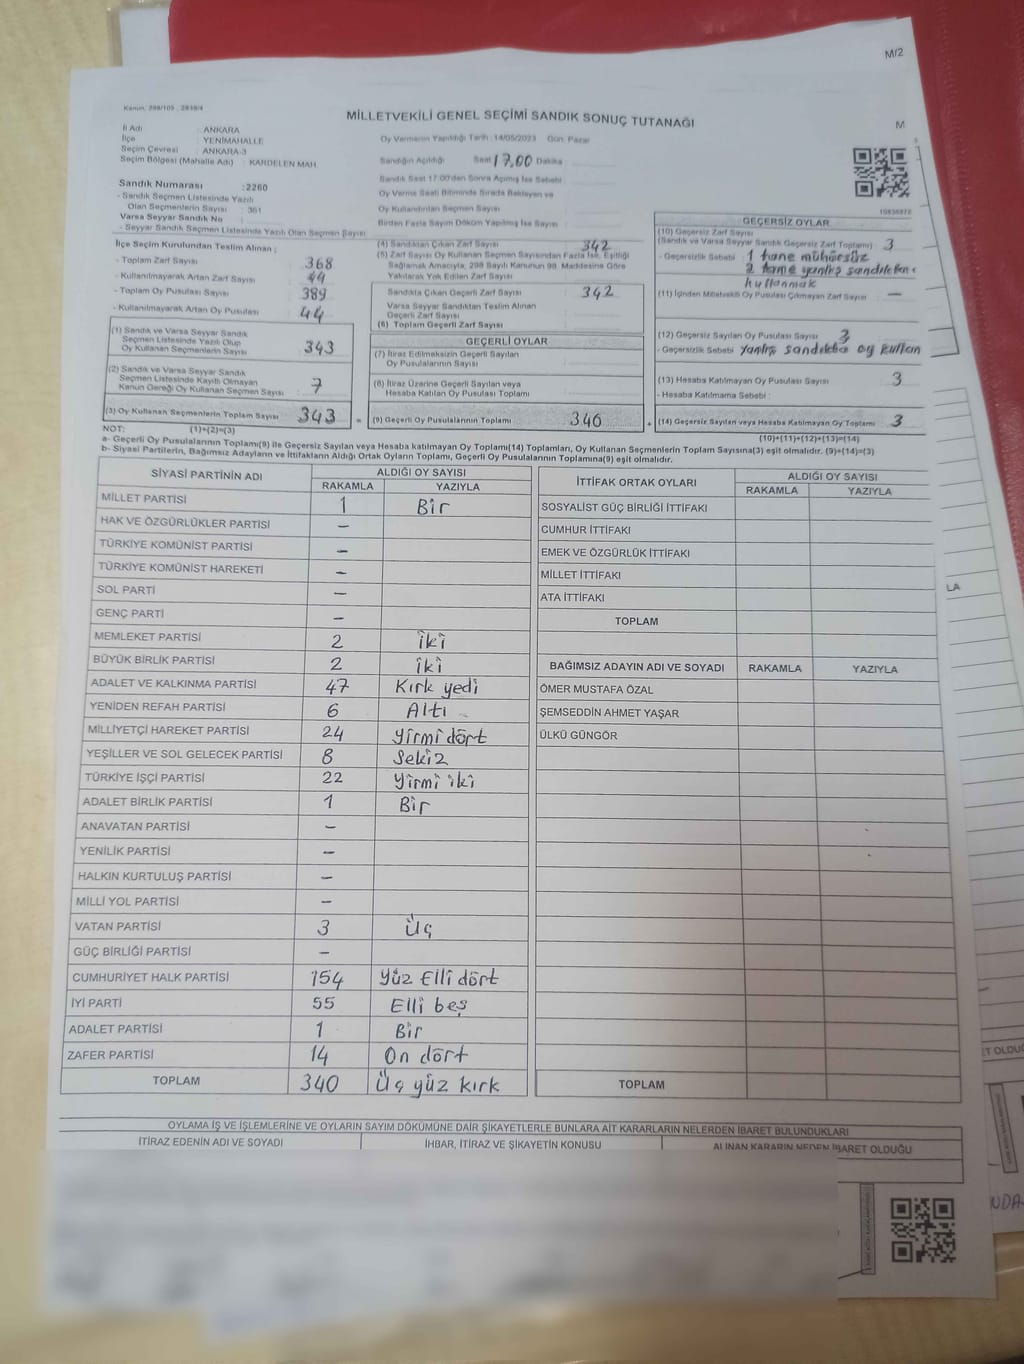 M/2
Kanun: 298/105 , 2839/4
MİLLETVEKİLİ GENEL SEÇİMİ SANDIK SONUÇ TUTANAĞI
M
İl Adı : ANKARA
İlçe : YENİMAHALLE
Seçim Çevresi : ANKARA-3
Seçim Bölgesi (Mahalle Adı) : KARDELEN MAH.
Oy Vermenin Yapıldığı Tarih : 14/05/2023 Gün: Pazar
Sandığın Açıldığı Saat 17.00 Dakika :
Sandık Saat 17:00'den Sonra Açılmış İse Sebebi :
Oy Verme Saati Bitiminde Sırada Bekleyen ve
Oy Kullandırılan Seçmen Sayısı :
Birden Fazla Sayım Döküm Yapılmış İse Sayısı :
Sandık Numarası : 2260
- Sandık Seçmen Listesinde Yazılı
Olan Seçmenlerin Sayısı : 361
Varsa Seyyar Sandık No :
- Seyyar Sandık Seçmen Listesinde Yazılı Olan Seçmen Sayısı :
İlçe Seçim Kurulundan Teslim Alınan ;
- Toplam Zarf Sayısı : 368
- Kullanılmayarak Artan Zarf Sayısı :
- Toplam Oy Pusulası Sayısı : 389
- Kullanılmayarak Artan Oy Pusulası : 44
(1) Sandık ve Varsa Seyyar Sandık
Seçmen Listesinde Yazılı Olup
Oy Kullanan Seçmenlerin Sayısı : 343
(2) Sandık ve Varsa Seyyar Sandık
Seçmen Listesinde Kayıtlı Olmayan
Kanun Gereği Oy Kullanan Seçmen Sayısı : 7
(3) Oy Kullanan Seçmenlerin Toplam Sayısı : 343 =
(4) Sandıktan Çıkan Zarf Sayısı : 342
(5) Zarf Sayısı Oy Kullanan Seçmen Sayısından Fazla İse, Eşitliği
Sağlamak Amacıyla, 298 Sayılı Kanunun 98. Maddesine Göre
Yakılarak Yok Edilen Zarf Sayısı :
Sandıkta Çıkan Geçerli Zarf Sayısı : 342
Varsa Seyyar Sandıktan Teslim Alınan
Geçerli Zarf Sayısı :
(6) Toplam Geçerli Zarf Sayısı :
GEÇERLİ OYLAR
(7) İtiraz Edilmeksizin Geçerli Sayılan
Oy Pusulalarının Sayısı :
(8) İtiraz Üzerine Geçerli Sayılan veya
Hesaba Katılan Oy Pusulası Toplamı :
(9) Geçerli Oy Pusulalarının Toplamı : 340 +
GEÇERSİZ OYLAR
(10) Geçersiz Zarf Sayısı
(Sandık ve Varsa Seyyar Sandık Geçersiz Zarf Toplamı) : 3
- Geçersizlik Sebebi : 1 tane mühürsüz
2 tane yanlış
kullanmak
(11) İçinden Milletvekili Oy Pusulası Çıkmayan Zarf Sayısı : —
(12) Geçersiz Sayılan Oy Pusulası Sayısı : 3
- Geçersizlik Sebebi : yanlış sandıkta oy
(13) Hesaba Katılmayan Oy Pusulası Sayısı : 3
- Hesaba Katılmama Sebebi :
(14) Geçersiz Sayılan veya Hesaba Katılmayan Oy Toplamı : 3
NOT: (1)+(2)=(3) (10)+(11)+(12)+(13)=(14)
a- Geçerli Oy Pusulalarının Toplamı(9) ile Geçersiz Sayılan veya Hesaba katılmayan Oy Toplamı(14) Toplamları, Oy Kullanan Seçmenlerin Toplam Sayısına(3) eşit olmalıdır. (9)+(14)=(3)
b- Siyasi Partilerin, Bağımsız Adayların ve İttifakların Aldığı Ortak Oyların Toplamı, Geçerli Oy Pusulalarının Toplamına(9) eşit olmalıdır.
SİYASİ PARTİNİN ADI ALDIĞI OY SAYISI
RAKAMLA YAZIYLA
MİLLET PARTİSİ 1 Bir
HAK VE ÖZGÜRLÜKLER PARTİSİ —
TÜRKİYE KOMÜNİST PARTİSİ —
TÜRKİYE KOMÜNİST HAREKETİ —
SOL PARTİ —
GENÇ PARTİ —
MEMLEKET PARTİSİ 2 iki
BÜYÜK BİRLİK PARTİSİ 2 iki
ADALET VE KALKINMA PARTİSİ 47 Kırk yedi
YENİDEN REFAH PARTİSİ 6 Altı
MİLLİYETÇİ HAREKET PARTİSİ 24 yirmi dört
YEŞİLLER VE SOL GELECEK PARTİSİ 8 Sekiz
TÜRKİYE İŞÇİ PARTİSİ 22 yirmi iki
ADALET BİRLİK PARTİSİ 1 Bir
ANAVATAN PARTİSİ —
YENİLİK PARTİSİ —
HALKIN KURTULUŞ PARTİSİ —
MİLLİ YOL PARTİSİ —
VATAN PARTİSİ 3 Üç
GÜÇ BİRLİĞİ PARTİSİ —
CUMHURİYET HALK PARTİSİ 154 yüz Elli dört
İYİ PARTİ 55 Elli beş
ADALET PARTİSİ 1 Bir
ZAFER PARTİSİ 14 On dört
TOPLAM 340 Üç yüz kırk
İTTİFAK ORTAK OYLARI ALDIĞI OY SAYISI
RAKAMLA YAZIYLA
SOSYALİST GÜÇ BİRLİĞİ İTTİFAKI
CUMHUR İTTİFAKI
EMEK VE ÖZGÜRLÜK İTTİFAKI
MİLLET İTTİFAKI
ATA İTTİFAKI
TOPLAM
BAĞIMSIZ ADAYIN ADI VE SOYADI RAKAMLA YAZIYLA
ÖMER MUSTAFA ÖZAL
ŞEMSEDDİN AHMET YAŞAR
ÜLKÜ GÜNGÖR
TOPLAM
OYLAMA İŞ VE İŞLEMLERİNE VE OYLARIN SAYIM DÖKÜMÜNE DAİR ŞİKAYETLERLE BUNLARA AİT KARARLARIN NELERDEN İBARET BULUNDUKLARI
İTİRAZ EDENİN ADI VE SOYADI İHBAR, İTİRAZ VE ŞİKAYETİN KONUSU ALINAN KARARIN NEDEN İBARET OLDUĞU